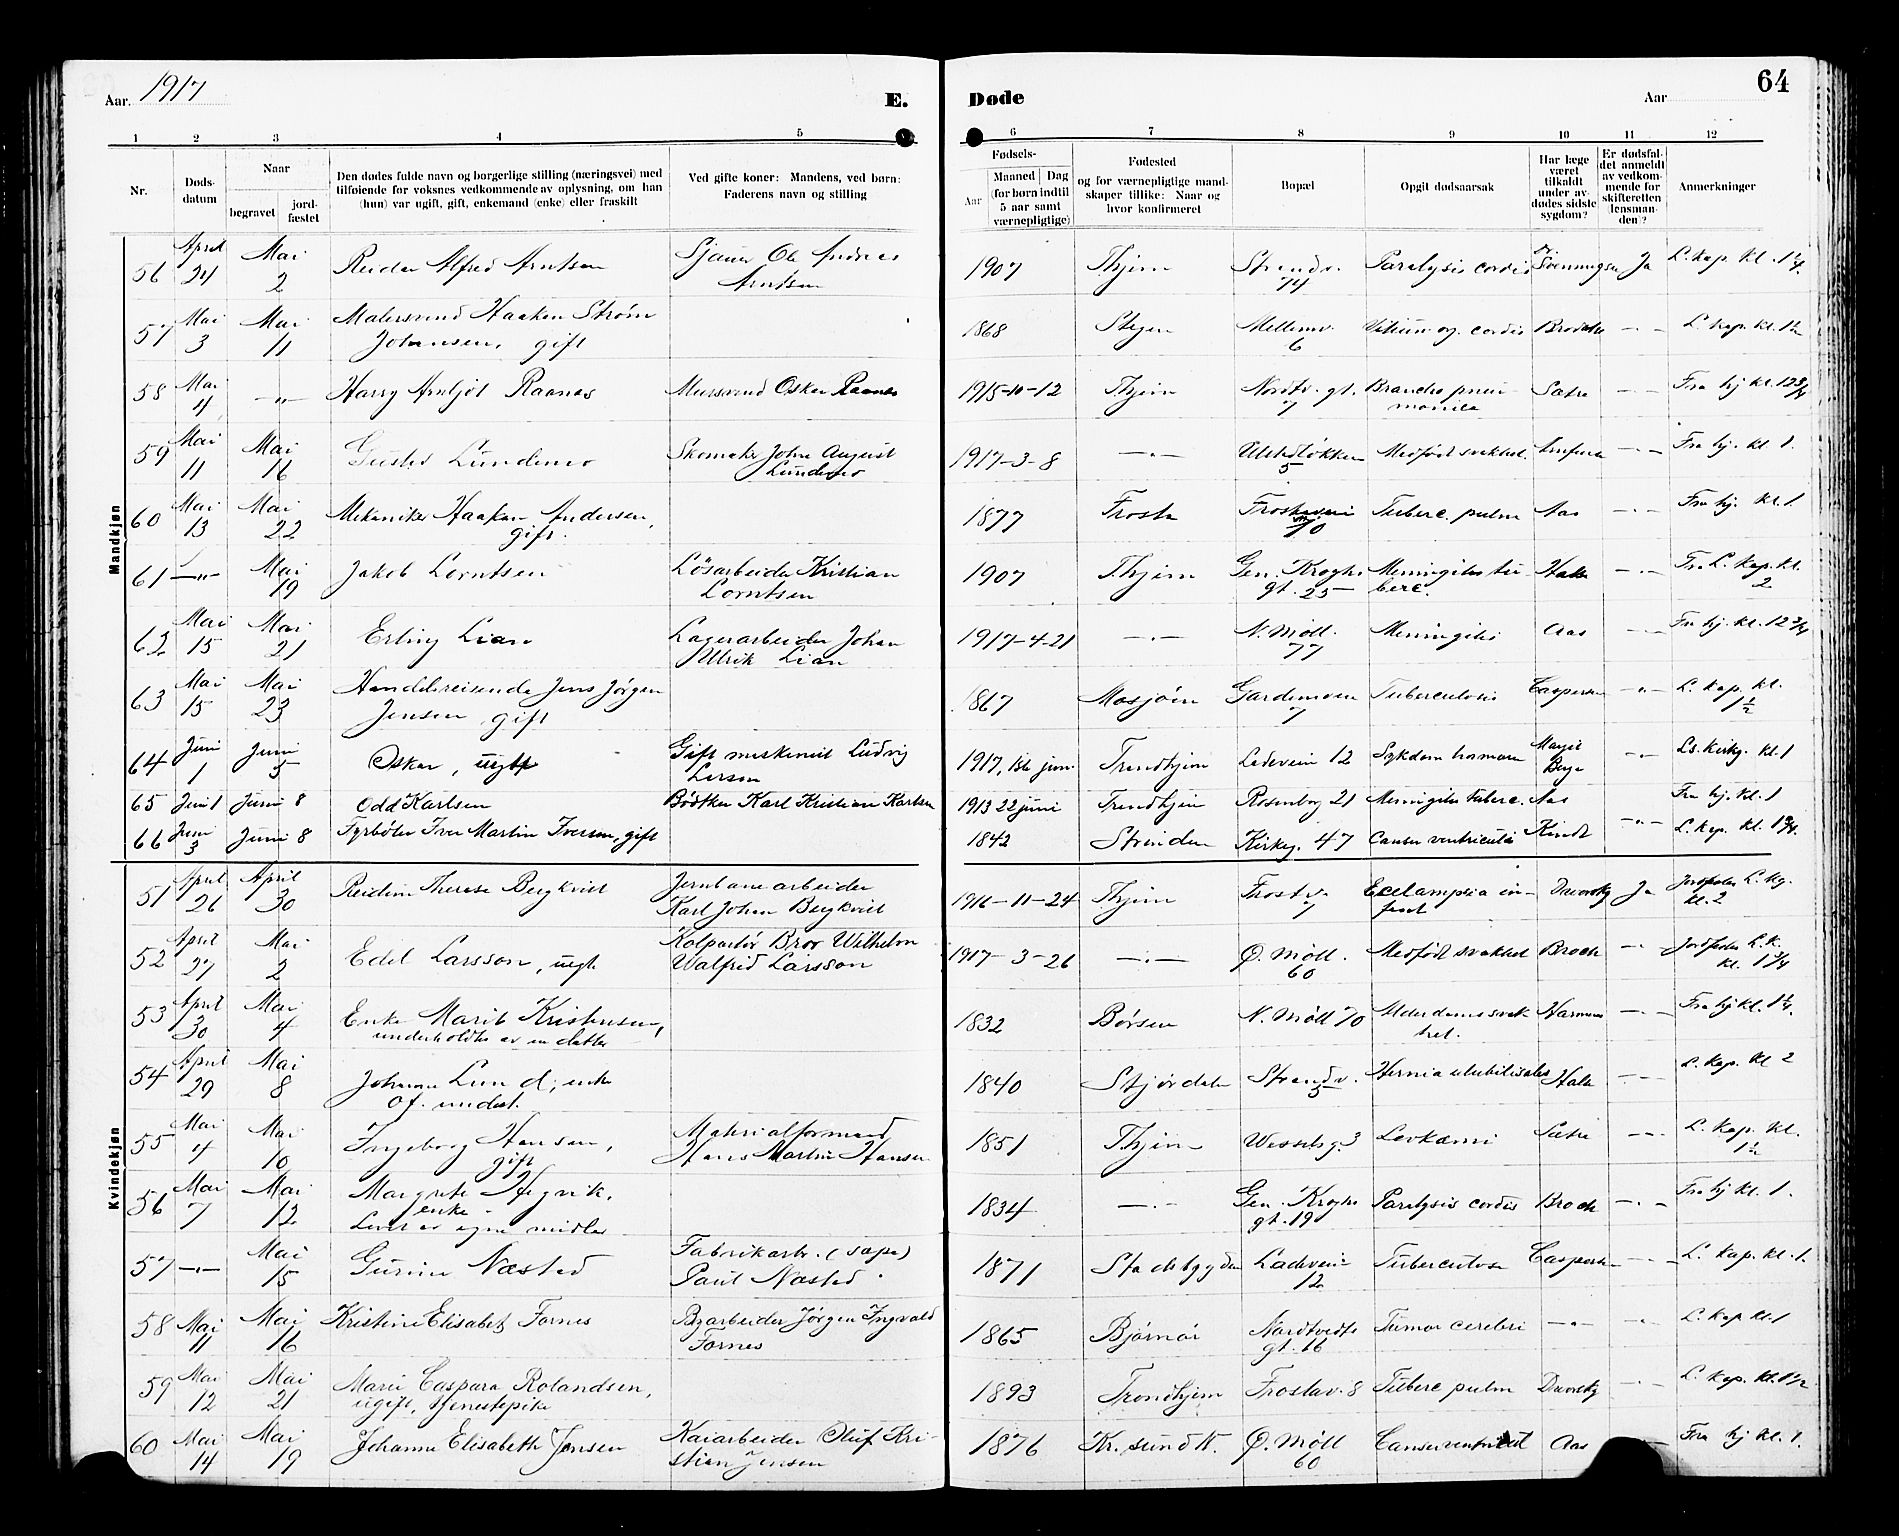 Aar 1917
E. Døde
Aar
64
1 2 3 4 5 6 7 8 9 10 11 12
Nr.
Døds-
datum
Naar
begravet
jord-
fæstet
Den dødes fulde navn og borgerlige stilling (næringsvei) med
tilføiende for voksnes vedkommende av oplysning, om han
(hun) var ugift, gift, enkemand (enke) eller fraskilt
Ved gifte koner: Mandens, ved børn:
Faderens navn og stilling
Fødsels-
Aar
Maaned Dag
(for børn indtil
5 aar samt
værnepligtige)
Fødested
og for værnepligtige mand-
skaper tillike: Naar og
hvor konfirmeret
Bopæl
Opgit dødsaarsak
Har læge
været
tilkaldt
under av-
dødes sidste
sygdom?
Er dødsfal-
det anmeldt
av vedkom-
mende for
skifteretten
(lensman-
den)?
Anmerkninger
Mandkjøn
56 April 24 Mai 2 Reidar Alfred Arntsen Sjauer Ole Andreas Arntsen 1907 Thjem Strandv. 74 Paralysis cordis Ja L. kap. kl. 1¼.
57 Mai 3 Mai 11 Malersvend Haaken Strøm Johansen, gift 1868 Mellemv. 6 Vitium og. cordis —"— L. kap. kl. 1½
58 Mai 4 —"— Harry Arnljot Raanes Mursvend Oskar Raanes 1915-10-12 Thjem Nordtv. gt. 7 Broncho pneu-monica Sætre —"— Fra hj kl. 12¾
59 Mai 11 Mai 16 Gustav Lundemo Skomaker John August Lundemo 1917-3-8 —"— 5 Medfødt svakhed —"— Fra hj. kl. 1.
60 Mai 13 Mai 22 Mekaniker Haakon Andersen, gift. 1877 Frosta 70 Tuberc. pulm Aas —"— Fra hj. kl. 1.
61 —"— Mai 19 Jakob Lorntsen Løsarbeider Kristian Lorntsen 1907 Thjem Gen. Kroghs gt. 25 Meningitis tu-berc. —"— Fr. L. kap. kl. 2
62 Mai 15 Mai 21 Erling Lian Lagerarbeider Johan Ulrik Lian 1917-4-21 —"— N. Møll. 77 Meningitis Aas —"— Fra hj. kl. 12¾
63 Mai 15 Mai 23 Handelsreisende Jens Jørgen Jensen, gift 1867 Mosjøen Gardemoen 7 Tuberculosis Caspersen —"— L. kap. kl. 1½
64 Juni 1 Juni 5 Oskar, uegte Gift Ludvig Larson 1917, 1ste juni Trondhjem Ladeveien 12 —"— Ls. kirkg. kl. 1
65 Juni 1 Juni 8 Odd Karlsen Bødtker Karl Kristian Karlsen 1913 22 juni Trondhjem Rosenborg 21 Meningitis tuberc. Aas Fra hj. kl. 1
66 Juni 3 Juni 8 Fyrbøter Iver Martin Iversen, gift 1842 Strinden Kirkeg. 47 Cancer ventriculi Kindt —"— L. kap. kl. 1¾.
Kvindekjøn
51 April 26 April 30 Reidun Therese Bergkvist Jernbanearbeider Karl Johan Bergkvist 1916-11-24 Thjem Frostv. 7 Eclampsia in-fant Ja L. kg. kl. 2
52 April 27 Mai 2 Edel Larsson, uegt. Kolportør Bror Wilhelm Walfrid Larsson 1917-3-26 —"— Ø. Møll. 60 Medfødt svakhed Broch —"— L. k. kl. 1¾
53 April 30 Mai 4 Enke Marit Kristensen, underholdtes av en datter 1832 Børsen N. Møll 70 Alderdomssvak-het. —"— Fra hj kl. 1¼.
54 April 29 Mai 8 Johanna Lund, enke Of. underst. 1840 Stjørdalen Strandv. 5 Hernia —"— L. kap. kl 2
55 Mai 4 Mai 10 Ingeborg Hansen, gift Materialformand Hans Martin Hansen 1851 Thjem Wesselsg. 3 Levkæmi Sætre —"— L. kap. kl. 1½
56 Mai 7 Mai 12 Margrete Hegvik, enke Lever av egne midler 1834 —"— Gen. Kroghs gt. 19 Paralysis cordis Broch —"— Fra hj kl. 1.
57 —"— Mai 15 Næsted Fabrikarb. (sæpe) Paul Næsted 1871 Stadsbygden Ladeveien 12 Tuberculose Caspersen —"— L. kap. kl. 1.
58 Mai 11 Mai 16 Kristine Elisabet Fornes Byarbeider Jørgen Ingvald Fornes 1865 Bjørnør Nordtvedts gt. 16 Tumor cerebri —"— —"— L. kap kl. 1
59 Mai 12 Mai 21 Marie Caspara Rolandsen, ugift, tjenestepike 1893 Trondhjem Frostav. 8 Tuberc pulm —"— L. kap. kl. 1½
60 Mai 14 Mai 19 Johanne Elisabeth Jensen Kaiarbeider Oluf Kri-stian Jensen 1876 Kr.sund N. Ø. Møll 60 Cancer ventriculi Aas Fra hj kl. 1.